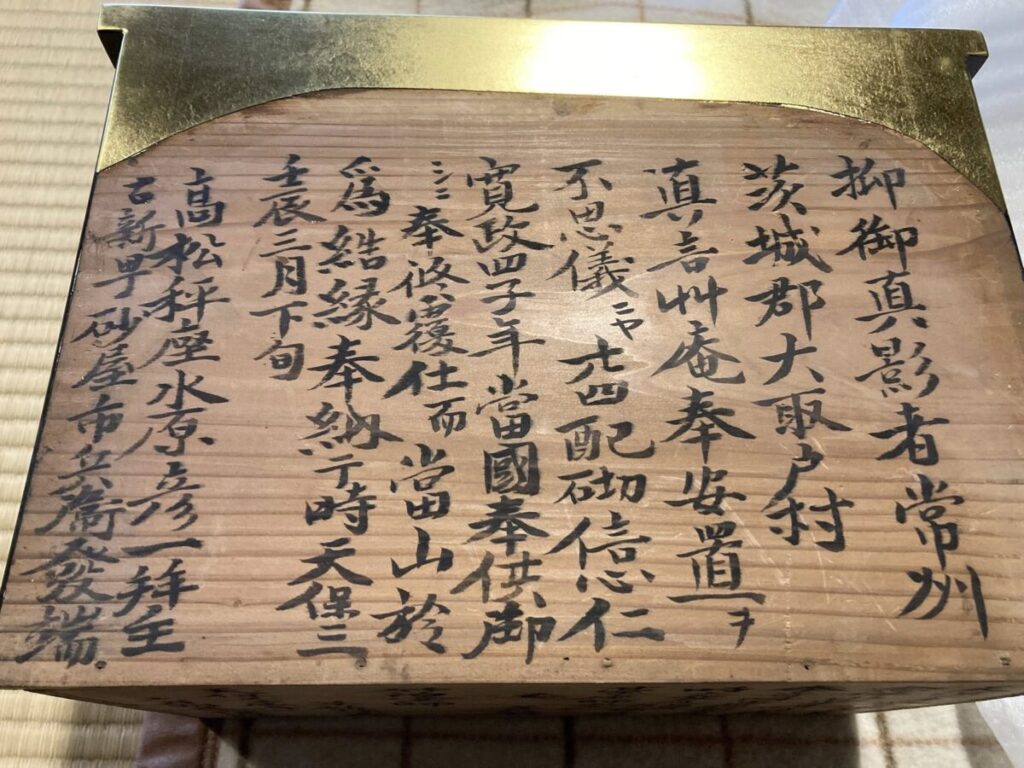 抑御真影者常州
茨城郡大取戸村
真言艸庵奉安置ヲ
不思儀ニや廿四配砌信心仁
寛政四子年當國奉供御
奉修覆仕而當山於
爲結縁奉納于時天保三
壬辰三月下旬
髙松秤座水原彦一拜主
古新早砂屋市兵衞發端